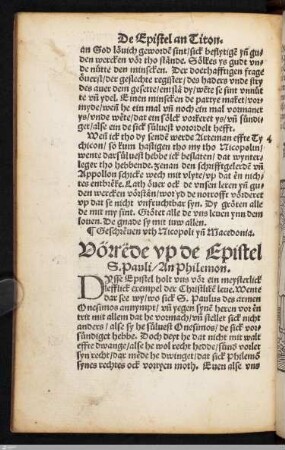 De Epistel an Titon.
an God lövich gewordē sint/sick beflytigē yn gu-
den wercken vör tho stānde. Sölkes ys gudt vnde
nütte den minschen. Der doerhafftigen frage
överst/der geslechte register/des haders vnde stry
des auer dem gesette/entsla dy/wēte se sint vnnüt
te vn ydel. Einen minschen de partye maket/vor-
myde/wen he ein mal vn noch ein mal vormanet
ys/vnde wēte/dat ein sölck vorkeret ys/vn sündi-
get/alse ein de sick süluest vorordelt hefft.
Wen ick tho dy sende werde Arteman effte Ty 4
chicon/so kum hastigen tho my tho Nicopolin/
wente dar süluest hebbe ick beslaten/dat wynter-
leger tho hebbende. Zenan den schrifftgelerdē vn
Appollon schicke wech mit vlyte/vp dat en nich-
tes entbreke. Lath öuer ock de vnsen leren yn gu-
den wercken vörstan/wor yd de notrofft vörderet
vp dat se nicht vnfruchtbar syn. Dy gröten alle
de mit my sint. Grötet alle de vns leuen ynn dem
louen. De gnade sy mit juw allen.
¶ Geschreuen vth Nicopoli yn Macedonia.
Vörrēde vp de Epistel
S. Pauli/An Philemon.
DYsse Epistel holt vns vör ein meysterlick
liefflick exempel der Christlikē leue. Wente
dar see wy/wo sick S. Paulus des armen
Onesimos annympt/vn yegen synē heren vor en
tritt mit allem dat he vormach/vn stellet sick nicht
anders/alse sy he süluest Onesimos/de sick vor-
sündiget hebbe. Doch deyt he dat nicht mit walt
effte dwange/alse he wol recht hedde/sünd' vorlet
syn recht/dar mēde he dwinget/dat sick Philemō
synes rechtes ock vortyen moth. Euen alse vns